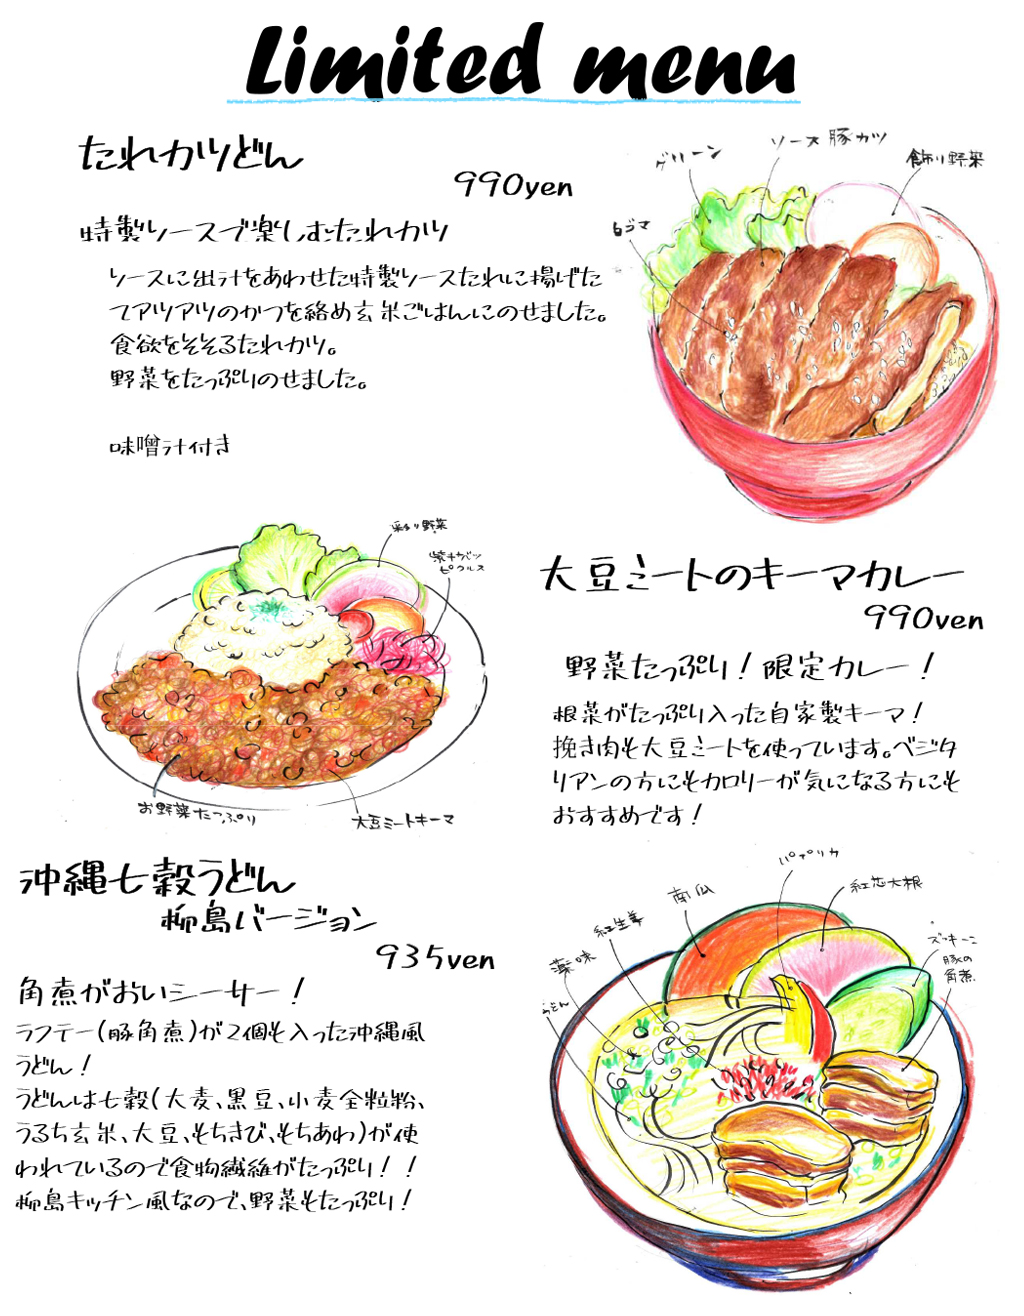 Limited menu
たれカツどん
990yen
特製ソースで楽しむたれカツ
ソースに出汁をあわせた特製ソースたれに揚げた
てアツアツのかつを絡め玄米ごはんにのせました。
食欲をそそるたれカツ。
野菜をたっぷりのせました。
味噌汁付き
グリーン
ソース豚カツ
飾り野菜
白ゴマ
彩り野菜
紫キャベツ
ピクルス
お野菜たっぷり
大豆ミートキーマ
大豆ミートのキーマカレー
990yen
野菜たっぷり！限定カレー！
根菜がたっぷり入った自家製キーマ！
挽き肉も大豆ミートを使っています。ベジタ
リアンの方にもカロリーが気になる方にも
おすすめです！
沖縄七穀うどん
柳島バージョン
935yen
角煮がおいシーサー！
ラフテー（豚角煮）が2個も入った沖縄風
うどん！
うどんは七穀（大麦、黒豆、小麦全粒粉、
うるち玄米、大豆、もちきび、もちあわ）が使
われているので食物繊維がたっぷり！！
柳島キッチン風なので、野菜もたっぷり！
パプリカ
南瓜
紅芯大根
紅生姜
薬味
うどん
ズッキーニ
豚の
角煮